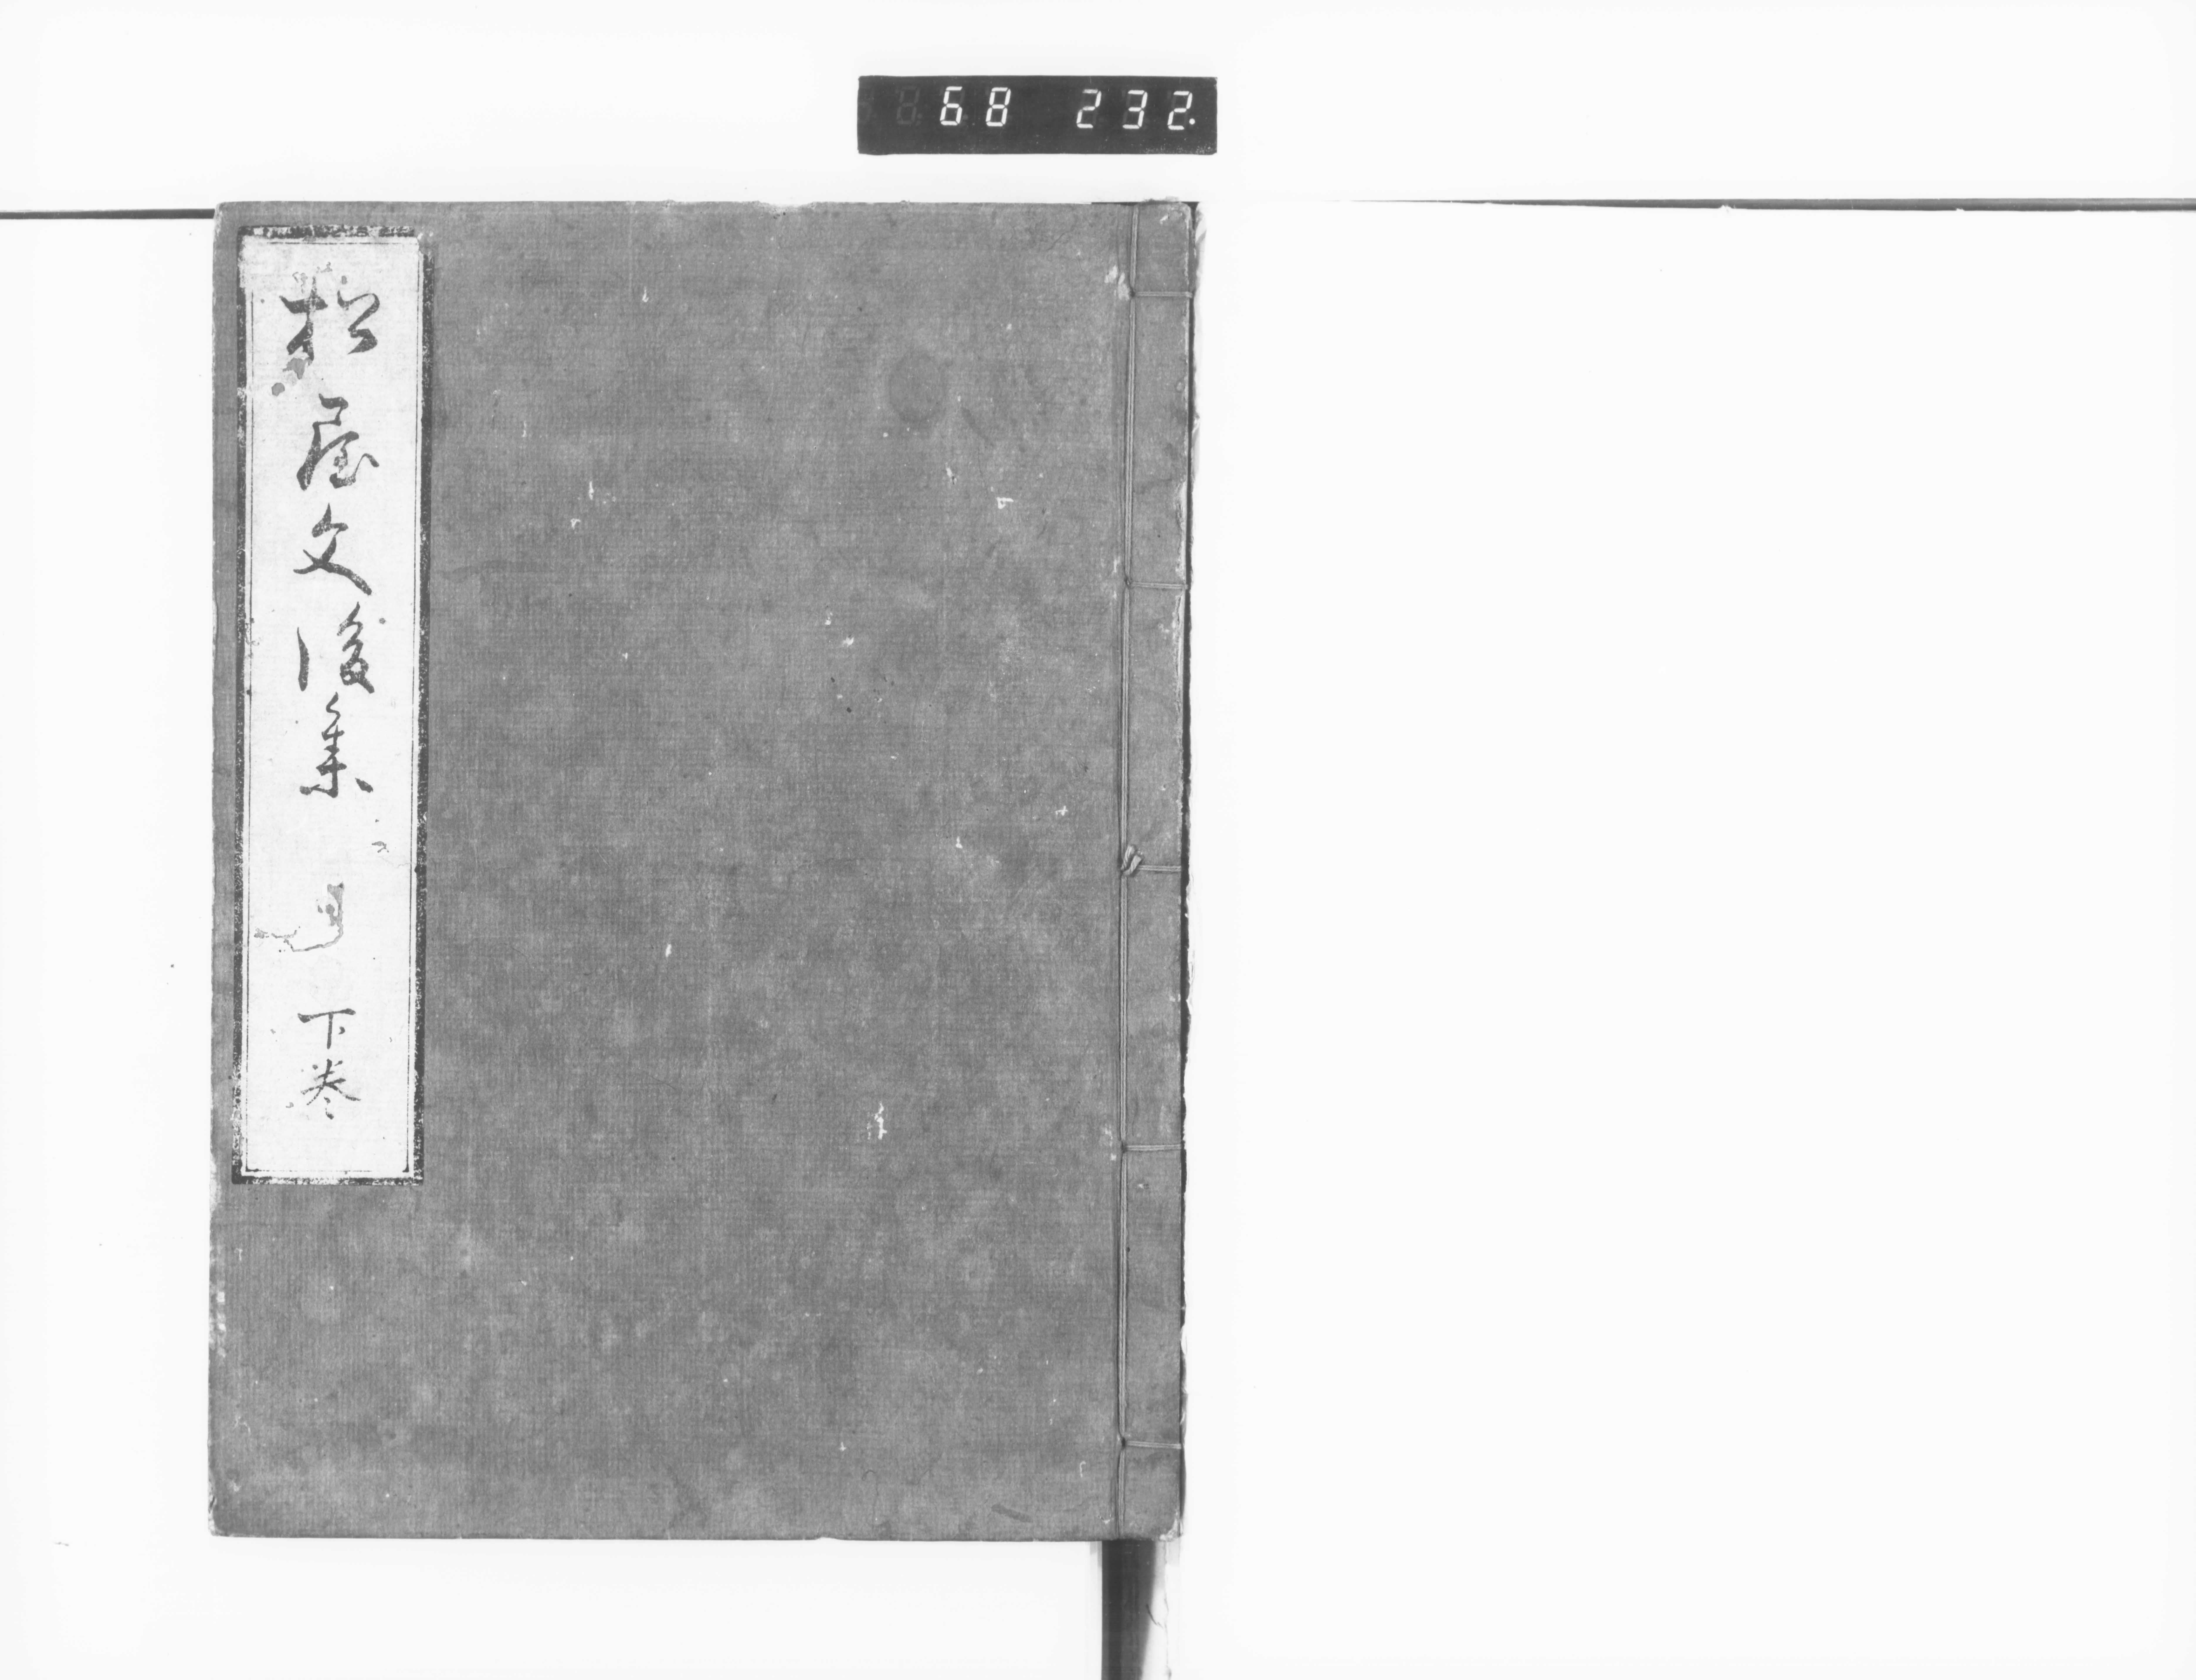 68 232.
松屋文後集
下巻